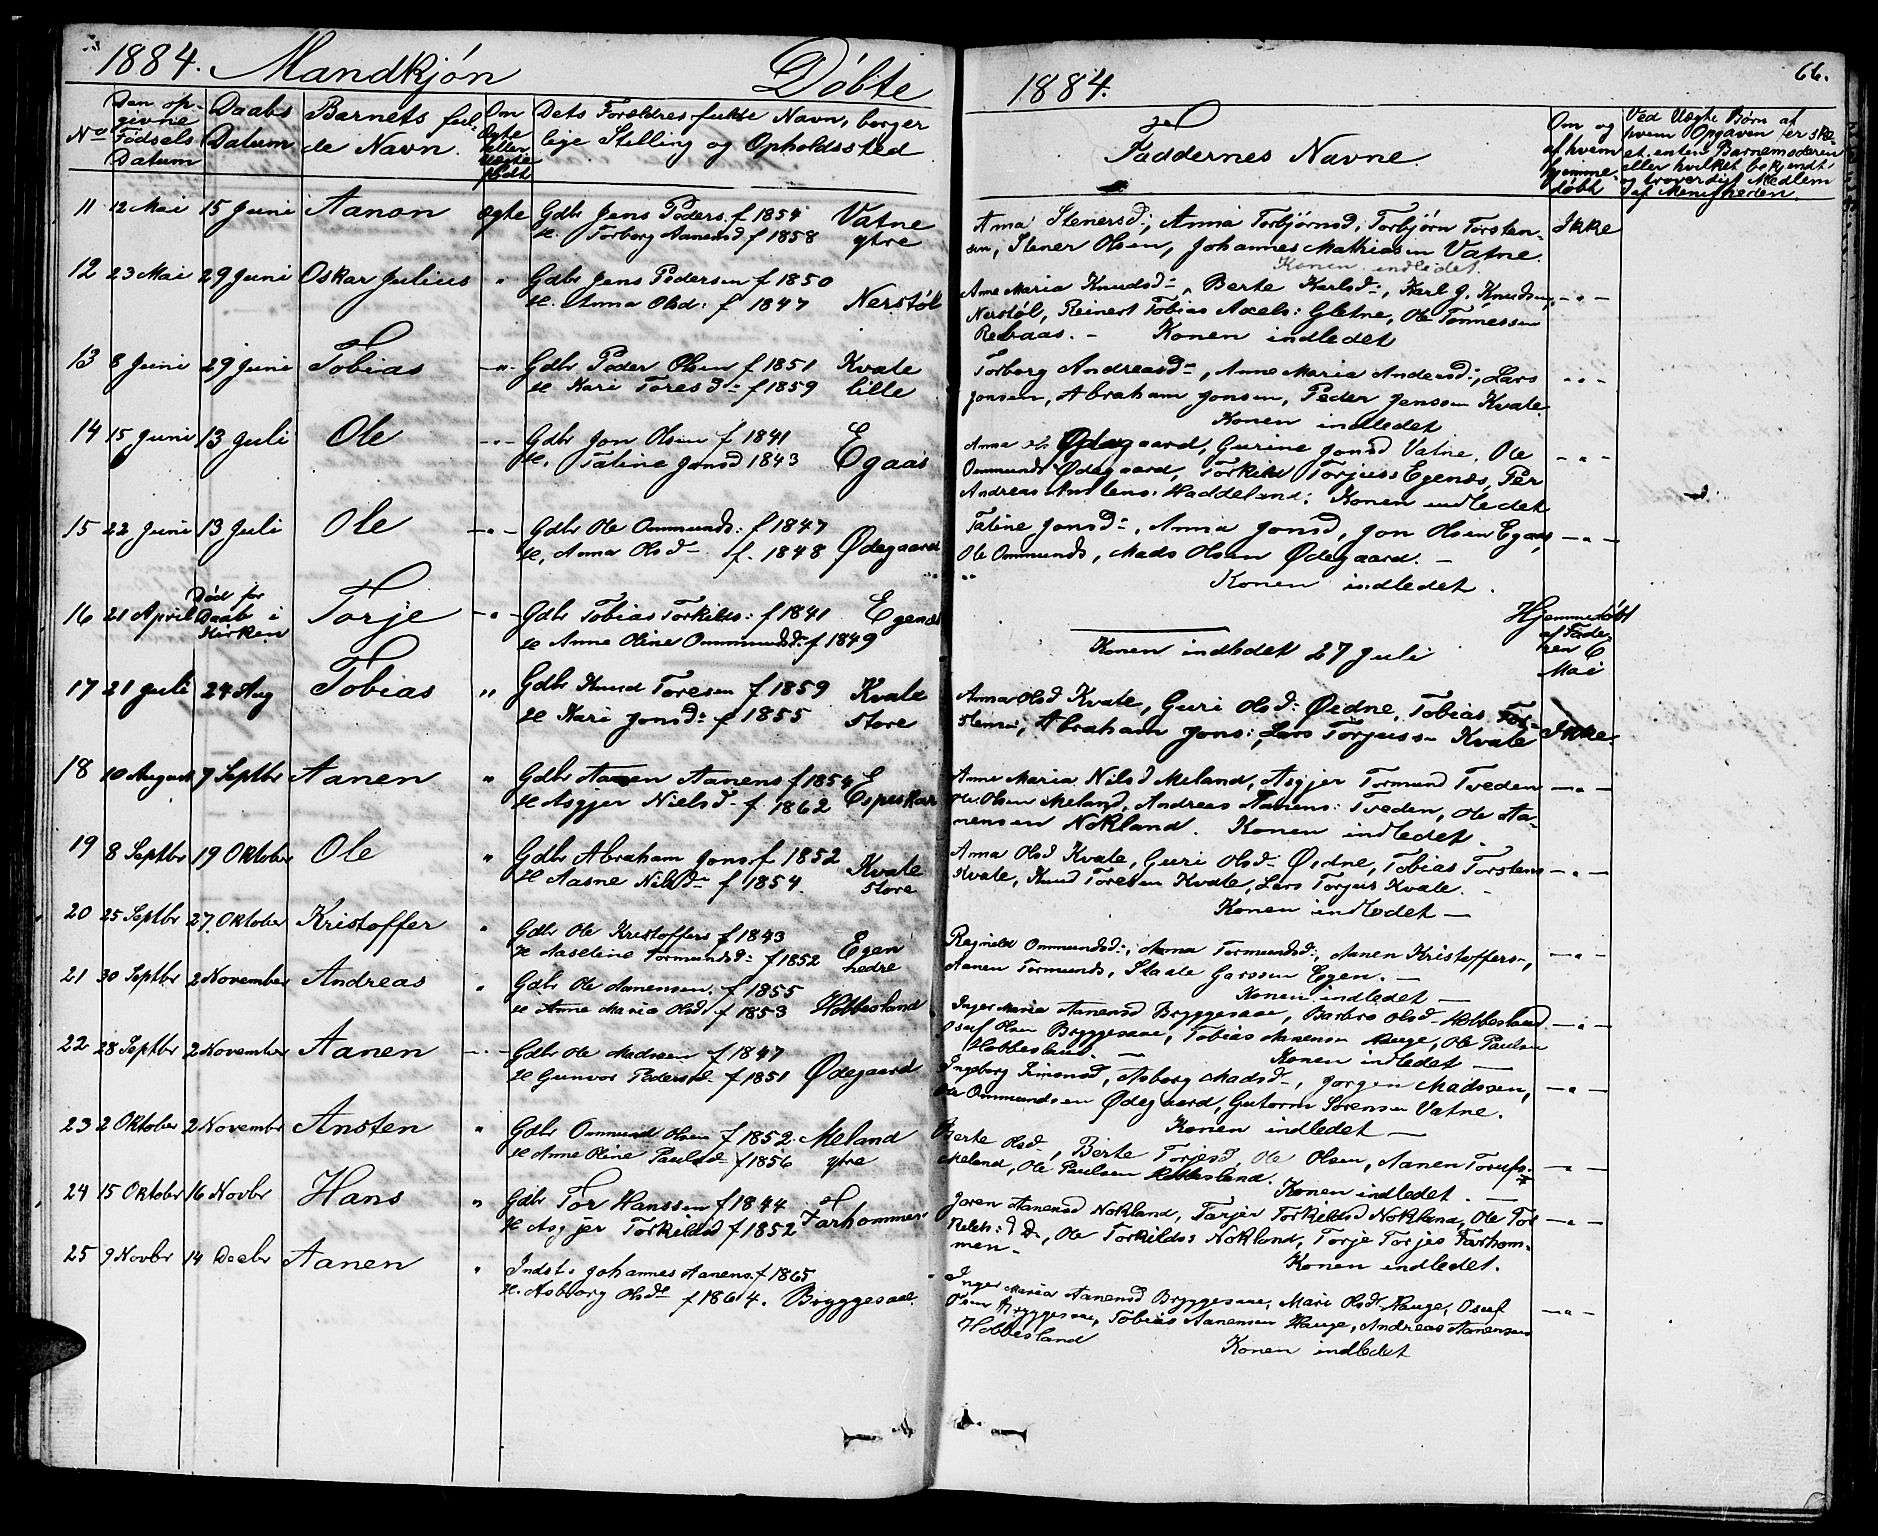 1884. Mandkjøn Døbte
No
Den op-
givne
Fødsels
Datum
Daabs
Datum
Barnets ful-
de Navn.
Om
Ægte
eller
uægte
født
Dets Forældres fulde Navn, borger
lige Stilling og Opholdssted
11 12 Mai 15 Juni Aanon ægte Gdbr Jens Peders. f 1854 Vatne
H. Torborg Aanensd f 1858 ytre
12 23 Mai 29 Juni Oskar Julius " Gdbr Jens Pedersen f 1850
H. Anna Olsd: f 1847 Nerstøl
13 8 Juni 29 Juni Tobias -"- Gdbr Peder Olsen f 1851 Kvale
H Kari Toresd f 1859 lille
14 15 Juni 13 Juli Ole -"- Gdbr Jon Olsen f 1841 E
H. Taline Jonsd 1843 Egaas
15 22 Juni 13 Juli Ole -"- Gdbr Ole Ommunds: f 1847
H. Anna Olsd f. 1848 Ødegaard
16 21 April Død før
Daab i
Kirken
Torje -"- Gdbr Tobias Torkilds: f 1841 Egenæs
H Anne Oline Ommundsd f 1849
17 21 Juli 24 Aug Tobias " Gdbr Knud Toresen f 1859 Kvale
H Kari Jonsd: f 1855 Store
18 10 August 7 Septbr Aanen " Gdbr Aanen Aanens f 1854 E
H Asgjer Nielsd f 1862 Espeskar
19 8 Septbr 19 Oktober Ole " Gdbr Abraham Jons. f 1852 Kvale
H Aasne Nilsd f 1854. Store
20 25 Septbr 27. Oktober Kristoffer " Gdbr Ole Kristoffers f 1843 Egen
H Aaseline Tormundsd: f 1852 nedre
21 30 Septbr 2 November Andreas " Gdbr Ole Aanensen. f 1855
H Anne Maria Olsd f 1853 Hobbesland
22 28 Septbr 2 November Aanen -"- Gdbr Ole Madssen f 1847
H Gunvor Pedersd f 1851 Ødegaard
23 2 Oktober 2 Novembr Ansten " Gdbr Ommund Olsen f 1852. Meland
H Anne Oline Paulsd f 1856 ytre
24 15 Oktobr 16 Novbr Hans " Gdbr Tor Hanssen f 1844
H Asgjer Torkildsd f 1852 Farhommen
25 9 Novbr 14 Decbr Aanen " Indst. Johannes Aanens. f 1865
H. Asborg Olsd f 1864. Bryggesaae.
66.
1884.
Faddernes Navne
Om og
af hvem
hjemme-
døbt
Ved Uægte Børn af
hvem Opgaven er ske
et enten Barnemoderen
eller hvilket bekjendt
og troværdigt Medlem
af Menigheden.
Anna Stenersd:, Anna Torbjørnsd, Torbjørn Torsten- Ikke
sen, Stener Olsen, Johannes Mathiasen Vatne.
Konen indledet.
Ane Maria Knudsd, Berte Karlsd, Karl J. Knudsen, -"-
Nerstøl, Reinert Tobias Axels: Gletne, Ole Tønnessen
Rebaas. - Konen indledet
Torborg Andreasd, Anne Maria Andersd:, Lars -"-
Jonsen, Abraham Jonsen, Peder Jenssen Kvale
Konen indledet
Anna Ødegaard, Gurine Jonsd Vatne, Ole -"-
Ommunds Ødegaard, Torkild Torjuss Egenæs, Per
Andreas Haddeland: Konen indledet
Taline Jonsd, Anna Jonsd, Jon Olsen Egaas, -"-
Ole Ommunds, Mads Olsen Ødegaard. -
" Konen indledet.
Hjemmedøbt
af Fade-
ren 6
Mai
Konen indledet 27 Juli
Anna Olsd Kvale, Guri Olsd: Øidne, Tobias Tor- Ikke.
stens:, Abraham Jons:, Lars Torjussen Kvale
Anne Maria Nilsd Meland, Asgjer Tormund Tveden -"-
Ole Olsen Meland, Andreas Aanens: Tveden, Ole Aa-
nensen Nokland. Konen indledet.
Anna Olsd Kvale, Guri Olsd Øidne, Tobias Torstens -"-
Kvale, Knud Toresen Kvale, Lars Torjus Kvale. -
Konen indledet -
Reginild Ommundsd:, Anna Tormundsd:, Aanen Kristoffers, -"-
Aanen Tormunds, Staale Egen. -
Konen indledet -
Inger Maria Aanensd Bryggesaae, Barbro Olsd Hobbesland -"-
Osuf Olsen Bryggesaae, Tobias Aanensen Hauge, Ole Paulsen
Hobbesland - Konen indledet -
Ingeborg Simonsd, Asborg Madsd, Jørgen Madssen, -"-
Ole Ommundsen Ødegaard, Gutorm Sørensen Vatne.
Konen indledet -
Berte Olsd, Berte Torjesd, Ole Olsen, Aanen Torufs. -"-
Meland, Ole Paulsen Hobbesland.
Konen indledet. -
Joren Aanensd Nokland, Tarjer Torkildsd Nokland, Ole Tor -"-
Ole Torkilds: Nokland, Torje Torjes Farhom-
men - Konen indledet.
Inger Maria Aanensd Bryggesaae, Mari Olsd Hauge, Osuf -"-
Olsen Bryggesaae, Tobias Aanensen Hauge, Andreas Aanensen
Hobbesland Konen indledet